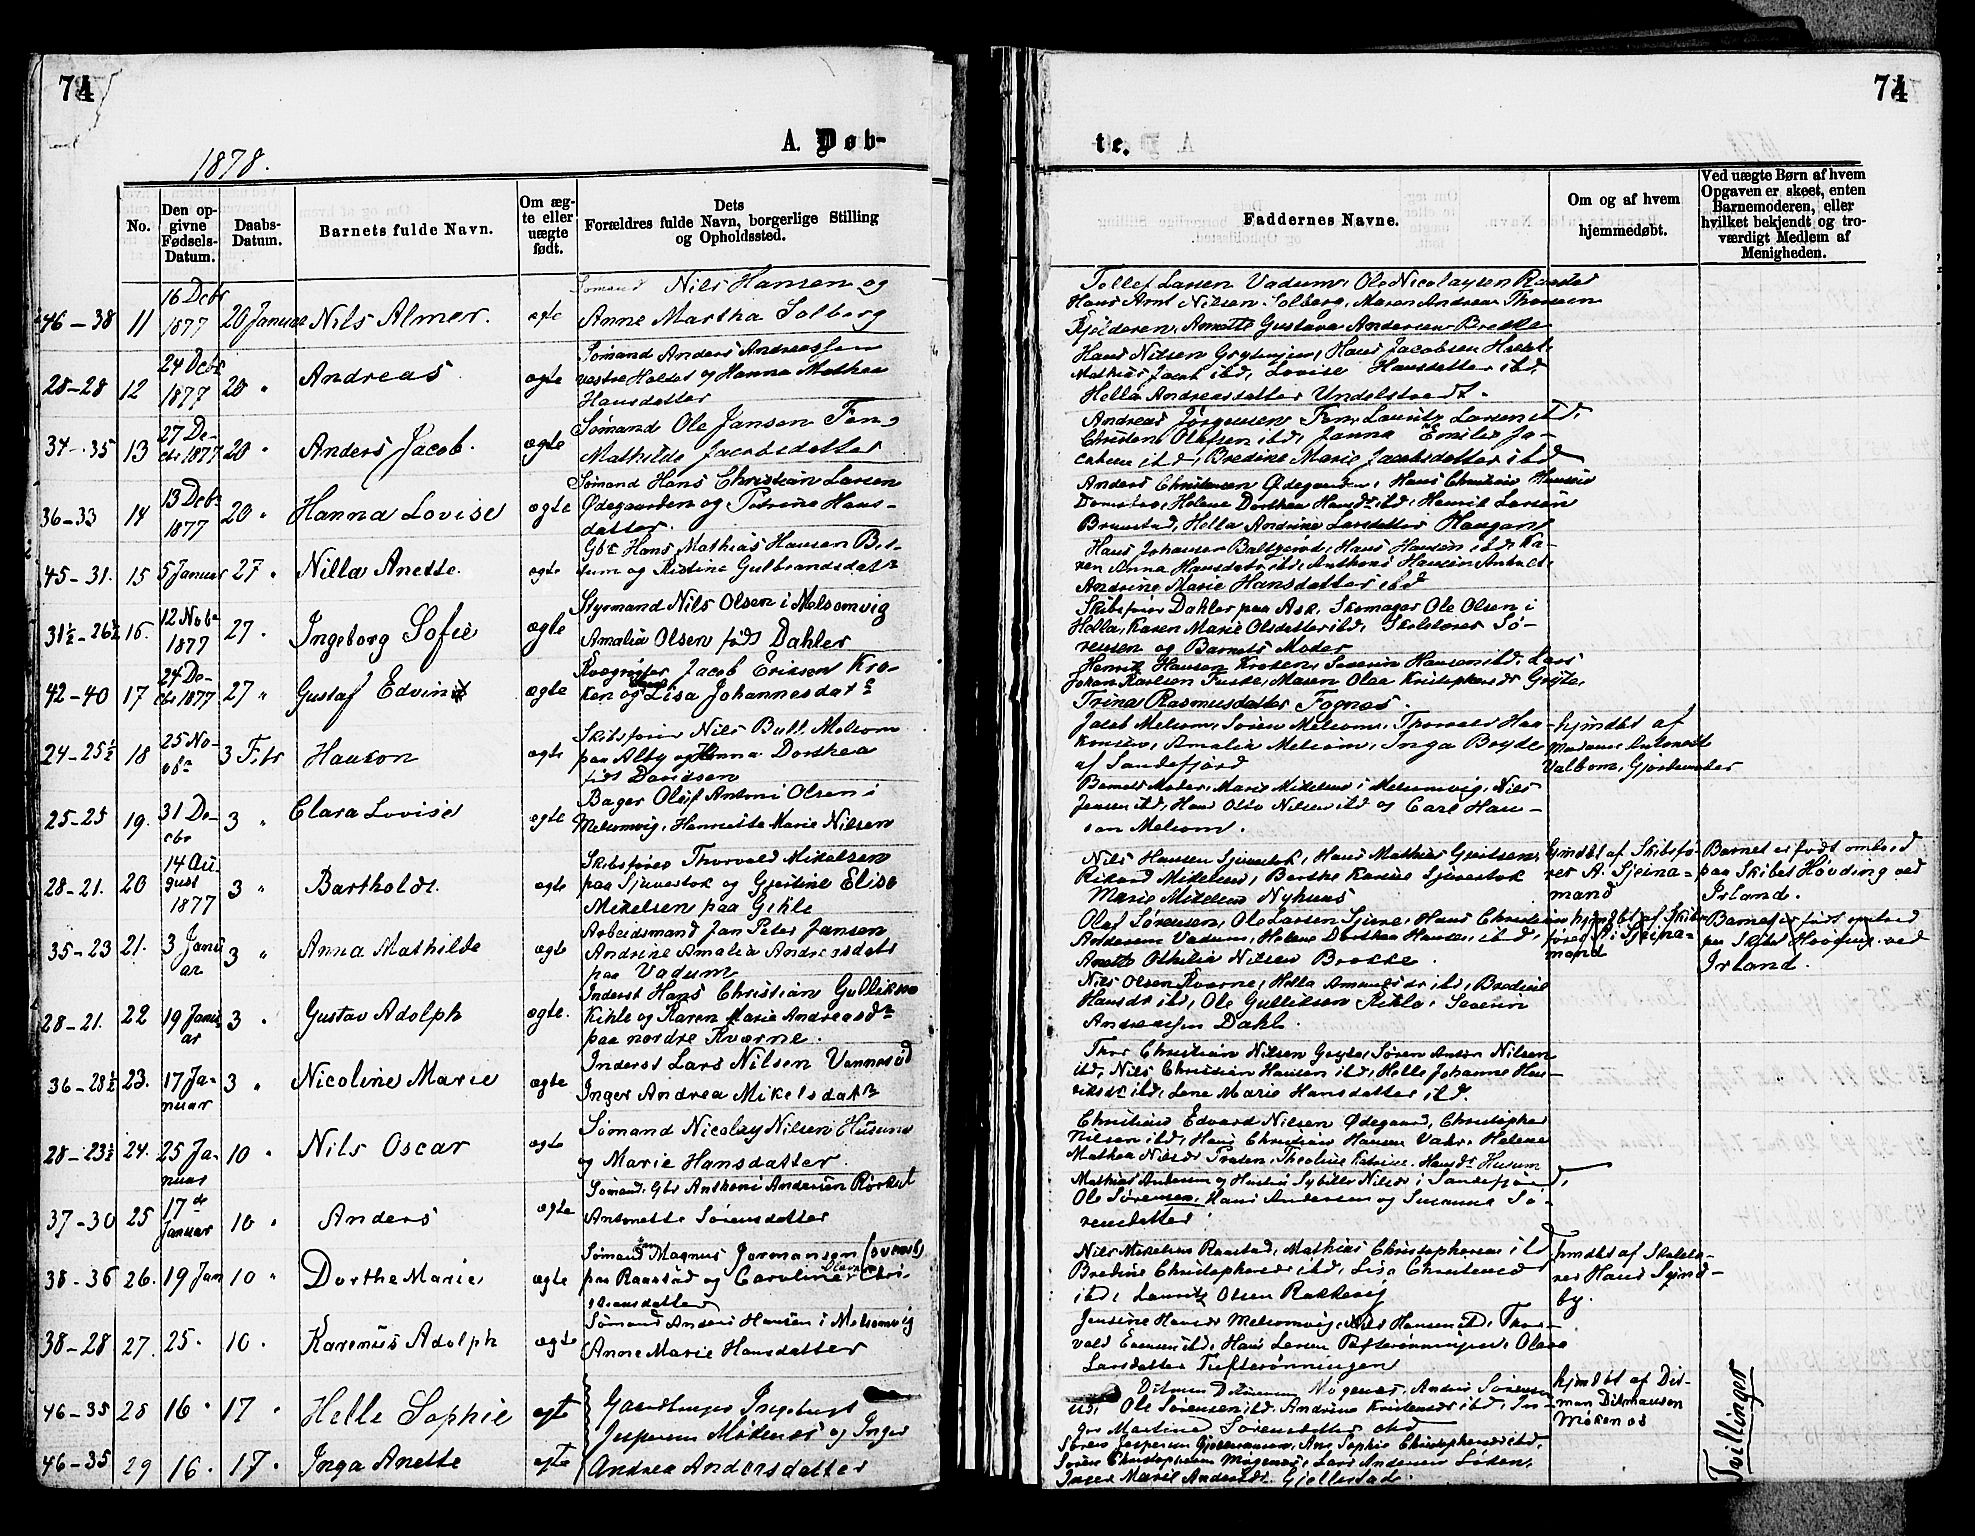 74
1878.
A. Døb-
No.
Den op-
givne
Fødsels-
Datum.
Daabs-
Datum.
Barnets fulde Navn.
Om æg-
te eller
uægte
født.
Dets
Forældres fulde Navn, borgerlige Stilling
og Opholdssted.
46-38 11 16 Decbr 1877 20 Januar Nils Almer. ægte
Sømand Nils Hansen og
Anne Martha Solberg
28-28 12 24 Decbr 1877 20 " Andreas ægte
Sømand Anders Andreassen
vestre Holdet og Hanna Mathea
Hansdatter
34-35 13 27 De-
cbr 1877 20 " Anders Jacob. ægte
Sømand Ole Jansen Fen
Mathilde Jacobsdatter
36-33 14 13 Decbr 1877 20 " Hanna Lovise ægte
Sømand Hans Christian Larsen
Ødegaarden og Petrine Hans-
datter.
45-31. 15 5 Januar 27 " Nilla Anette. ægte
Gbr Hans Mathias Hansen
og Kistine Gulbrandsdatr
31½-26½ 16. 12 Novbr 1877 27. Ingeborg Sofie ægte
Styrmand Nils Olsen i Melsomvig
Amalia Olsen født Dahler
42-40 17 24 De-
cbr 1877 27 " Gustaf Edvin ægte
Jacob Eriksen Kro-
ken og Lisa Johannesdatr
24-25½ 18 25 No-
vbr 3 Febr Haakon ægte
Skibsfører Nils Bull Melsom
paa Alby og Hanna Dorthea
født Davidsen
25-25 19. 31 De-
cbr 3 " Clara Lovise ægte
Bager Oluf Antoni Olsen i
Melsomvig, Henriette Marie Nilsen
28-21. 20 14 Au-
gust
1877 3 " Barthold. ægte
Skibsfører Thorvald Mikelsen
paa Sjuestok og Gjertine Elise
Mikelsen paa Gihle
35-23 21. 3 Janu
ar 3 " Anna Mathilde ægte
Arbeidsmand Jan Peter Jansen
Andrine Amalia Andreasdatr
paa Vadum
28-21. 22 19 Janu
ar 3 " Gustav Adolph ægte.
Inderst Hans Christian Gulliksen
Kihle og Karen Marie Andreasdr
paa nordre Kværne.
36-28½ 23. 17 Ja-
nuar 3 " Nicoline Marie ægte
Inderst Lars Nilsen Vennerød
Inger Andrea Mikelsdatr
28-23½ 24. 25 Ja-
nuar 10 " Nils Oscar ægte
Sømand Nicolay Nilsen Husum
og Marie Hansdatter.
37-30 25 17de
Januar 10 " Anders ægte
Sømand, Gbr Anthoni Andersen
Antonette Sørensdatter
38-36 26. 19 Jan 10 " Dorthe Marie ægte
Sømand Magnus Jormansen
paa Raastad og Caroline Chri-
stiansdatter
38-28 27. 25 " 10 " Karenus Adolph ægte
Sømand Anders Hansen i Melsomvig
Anne Marie Hansdatter
46-35 28 16 " 17 " Helle Sophie ægte
Gaardbruger Ingebregt
Jespersen Møkenes og Inger
46-35 29 16 " 17 " Inga Anette ægte
Andrea Andersdatter
74
te.
Faddernes Navne.
Om og af hvem
hjemmedøbt.
Ved uægte Børn af hvem
Opgaven er skeet, enten
Barnemoderen, eller
hvilket bekjendt og tro-
værdigt Medlem af
Menigheden.
Tollef Larsen Vadum, Ole Nicolaysen Raastad
Hans Arnt Nilsen Solberg, Maren Andrea Thoresen
Kjolderen, Anette Gustava Andersen Brekke
Hans Nilsen, Hans Jacobsen
Mathias Jacob ibd, Lovise Hansdatter ibd,
Hella Andreasdatter Undelstvedt.
Andreas Jørgensen Fen, Lauritz Larsen ibd,
Christen Olafsen ibd, Janna Emilie Ja-
cobsen ibd, Bredine Marie Jacobsdatter ibd
Anders Christensen Ødegaarden, Hans Christian Hansen
Helene Dorthea Hansdr ibd, Henrik Larsen
Hella Andrine Larsdatter Haugan
Hans Johansen, Hans Hansen ibd, Ka-
ren Anna Hansdatr ibd, Anthoni Hansen
Andrine Marie Hansdatter ibd
Skibsfører Dahler paa Ask, Skomager Ole Olsen i
Hella, Karen Marie Olsdatter ibd, Skolelærer Sø-
rensen og Barnets Moder
Henrik Hansen Kroken, Severin Hansen ibd, Lars
Johan Karlsen, Maren Olea Kristophersdr Gryte,
Trina Rasmusdatter Fognæs.
Jacob Melsom, Søren Melsom, Thorvald Haa-
konsen, Amalia Melsom, Inga Bryde
af Sandefjord
hjmdbt af
Madame Antonette
Valbom, Gjordemoder
Barnets Moder, Marie Mikelsen i Melsomvig, Nils
Jensen ibd, Hans Olsen Nilsen ibd og Carl Han-
sen Melsom.
Nils Hansen Sjuestok, Hans Mathias Gjertsen,
Rikard Mikelsen, Berthe Karine Sjuestok
Marie Mikelsen Nyhuus
hjmdbt af Skibsfø-
rer A. Speina-
mand
Barnet er født ombord
paa Skibet Høvding ved
Irland.
Olaf Sørensen, Ole Larsen, Hans Christian
Andersen Vadum, Helene Dorthea Hansen, ibd,
Anette Othilia Nilsen Brekke.
hjmdbt af Skibs-
fører A. Speina-
mand
Barnet er født ombord
paa Skibet Høvding ved
Irland.
Nils Olsen Kværne, Hella ibd, Bredine
Hansdr ibd, Ole Gulliksen Kihle, Severin
Andreassen Dahl.
Thor Christian Nilsen Gryte, Søren Anton Nilsen
ibd, Nils Christian Hansen ibd, Helle Johanne Hen-
riksdr ibd, Lene Marie Hansdatter ibd.
Christian Edvard Nilsen Ødegaard, Christopher
Nilsen ibd, Hans Christian Hansen, Helene
Mathea Nilsdr, Theoline Katrine Hansdr Husum
Mathias Andersen og Hustru Sybille Nilsdr i Sandefjord,
Ole Sørensen, Hans Andersen og Susanna Sø-
rensdatter
Nils Mikelsen Raastad, Mathias Christophersen ibd
Bredine Christophersdr ibd, Lisa Christensdr
ibd, Lauritz Olsen Rakkevig
hjmdbt af Skolelæ-
rer Hans Sønd-
by.
Jensine Hansdr Melsomvig, Nils Hansen ibd, Thor-
vald Evensen ibd, Hans Larsen Tufterønningen, Olava
Larsdatter Tufterønningen
Ditman Ditmansen Møgenæs, Anders Sørensen
ibd, Ole Sørensen ibd, Andrine Kristensdr ibd, In-
ger Martine Sørensdatter ibd
hjmdbt af Dit-
man Ditmansen
Møkenæs
Søren Jespersen, Ane Sophie Christophersdr ibd,
Søren Christophersen Møgenæs, Lars Andersen,
Inger Marie Andersdr. Gjellestad.
Tvillinger